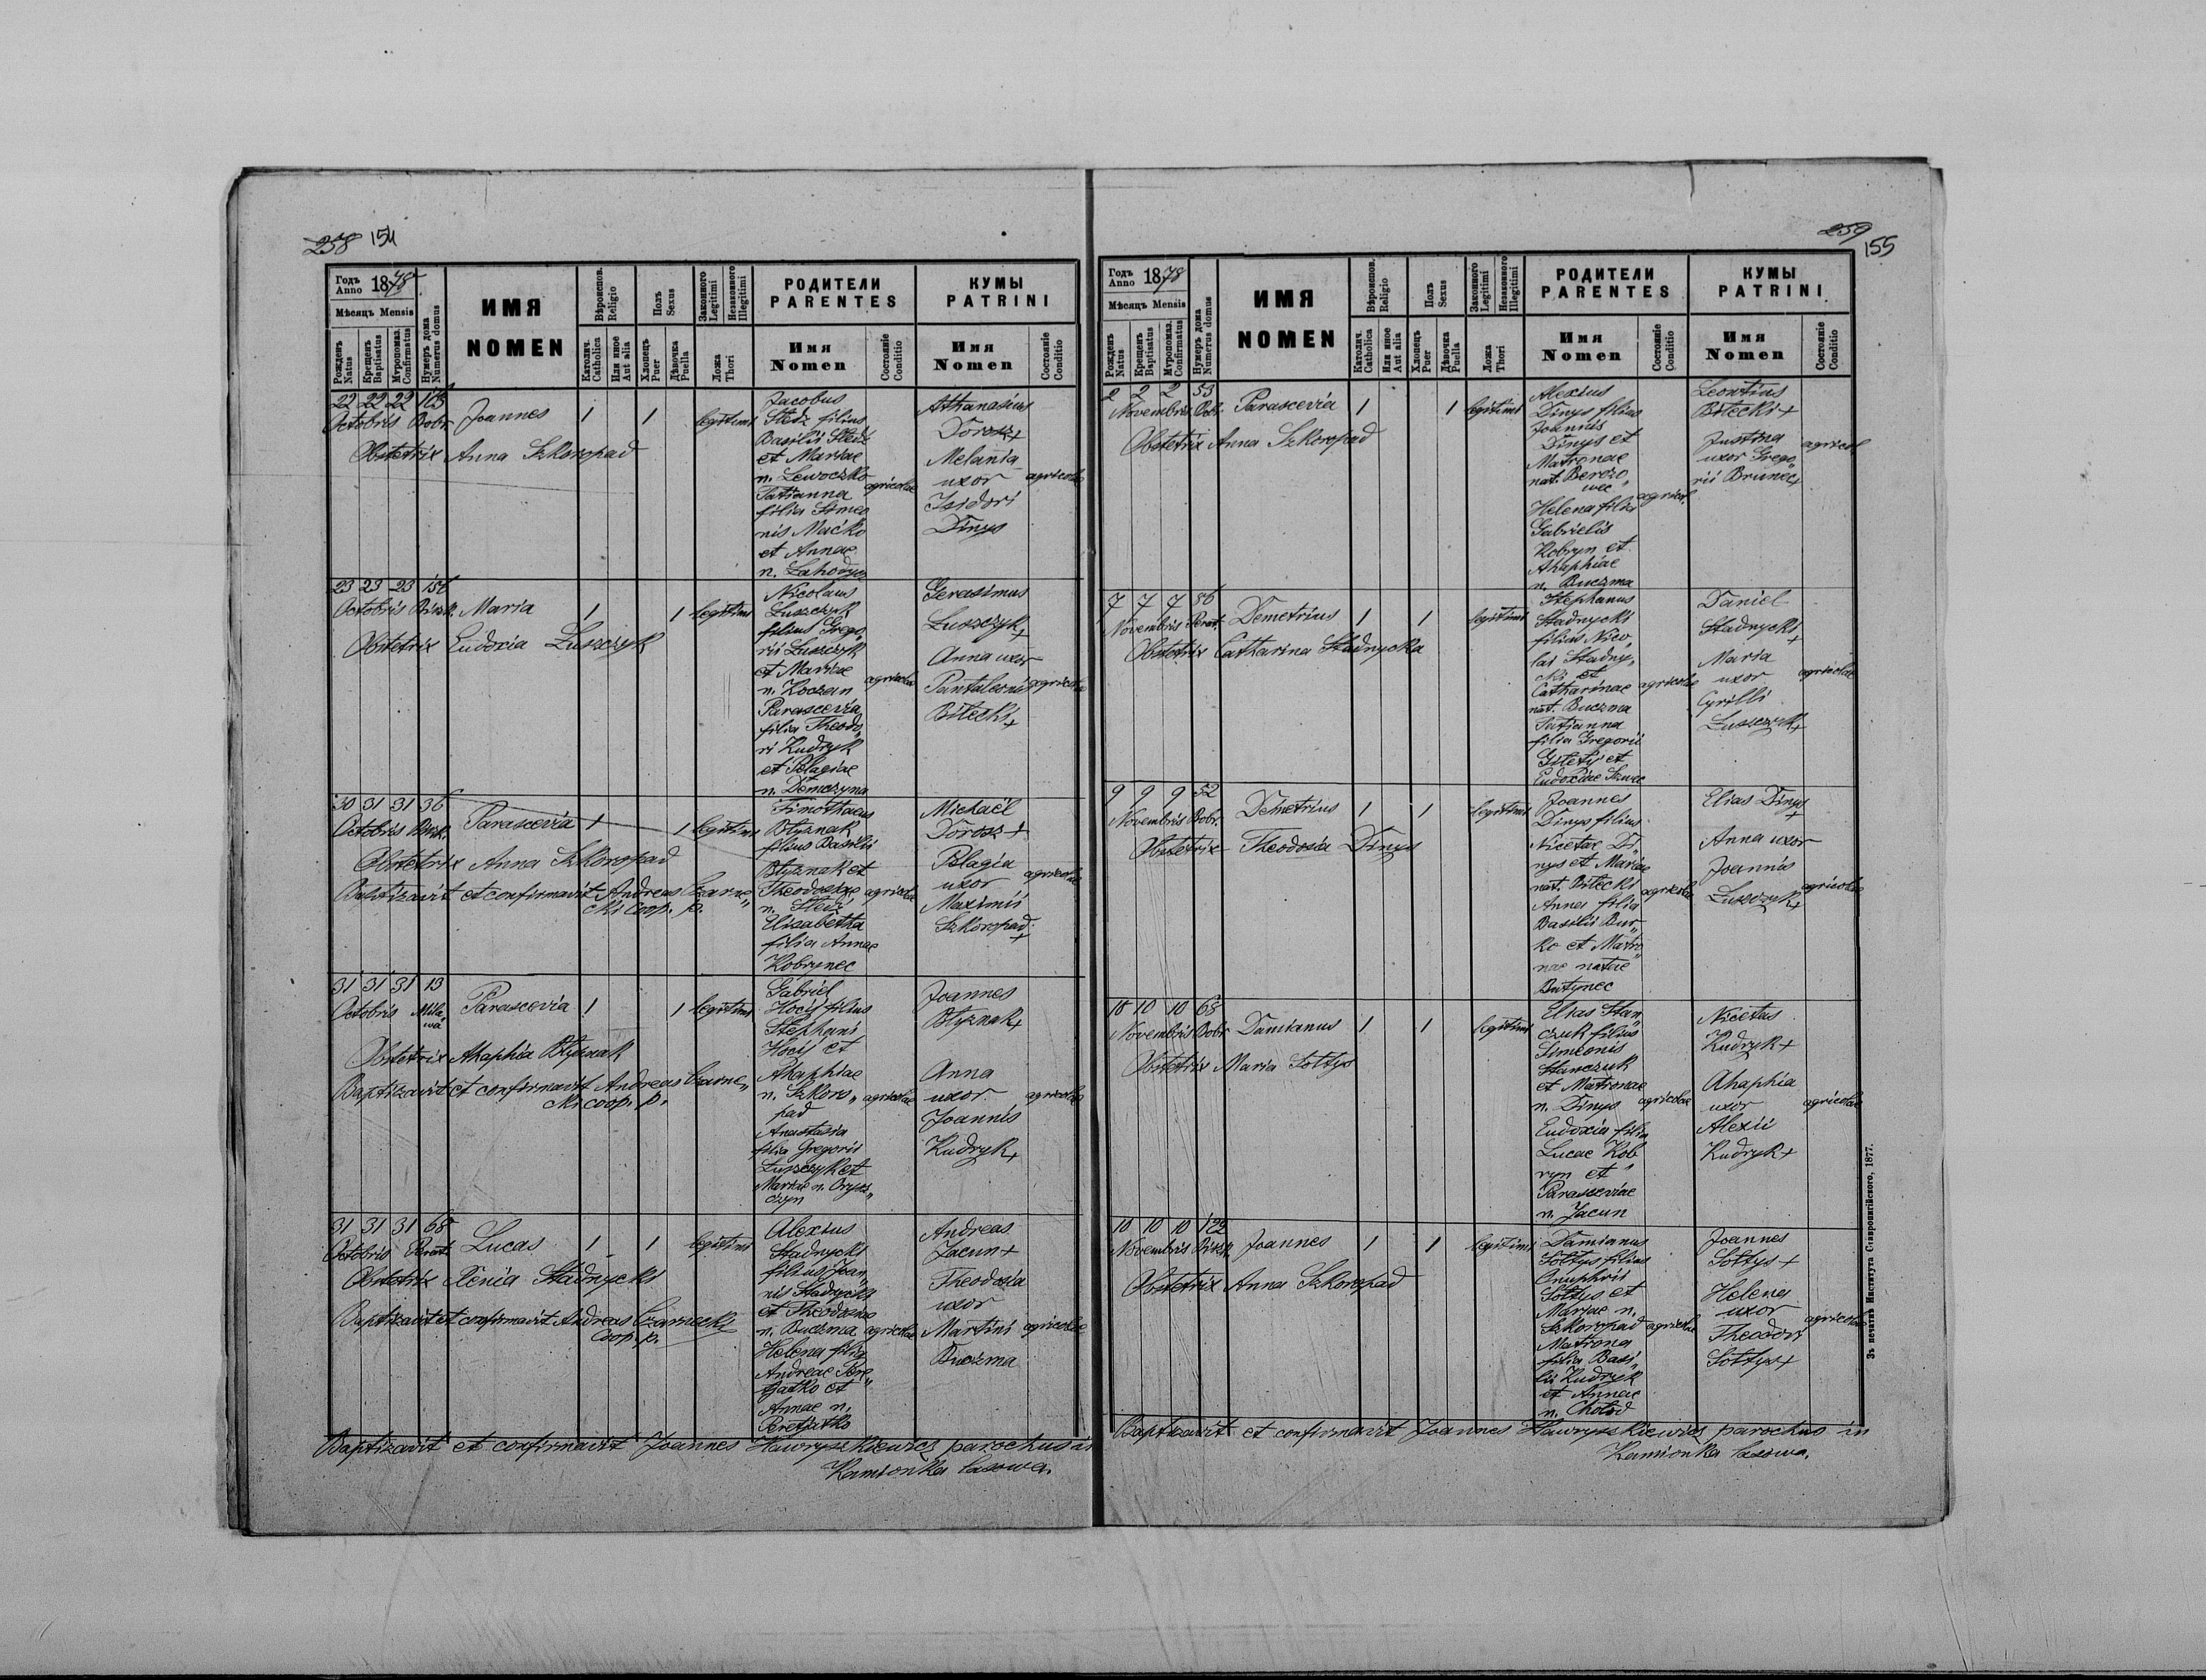 258 154
Годъ Anno 1878
Мѣсяцъ Mensis
Рожденъ Natus
Крещенъ Baptisatus
Мѵропомаз. Confirmatus
Нумеръ дома Numerus domus
ИМЯ
NOMEN
Вѣроиспов. Religio
Католич. Catholica
Или иное Aut alia
Полъ Sexus
Хлопецъ Puer
Дѣвочка Puella
Законного Legitimi
Незаконного Illegitimi
Ложа Thori
РОДИТЕЛИ
PARENTES
Имя Nomen
Состояніе Conditio
КУМЫ
PATRINI
Имя Nomen
Состояніе Conditio
22 22 22
Octobris Bobr.
Joannes 1 1 legitimi
Obstetrix Anna Szkoropad
Jacobus
Sledz filius
Basilii Sledz
et Mariae
n. Lewoczko
Tatianna
filia Simeo
nis Maćko
et Annae
n. Lahodycz
agricolae
Athanasius
Dorosz+
Melania
uxor
Isidori
Dinys
agricolae
23 23 23
Octobris
Maria 1 1 legitimi
Obstetrix Eudoxia Luszczyk
Nicolaus
Luszczyk
filius Grego„
rii Luszczyk
et Mariae
n. Koczan
Parascevia
filia Theodo„
ri Kudryk
et Pelagiae
n. Demczyna
agricolae
Gerasimus
Luszczyk
+
Anna uxor
Pantaleonis
Bilecki+
agricolae
30 31 31 36
Octobris
Parascevia 1 1 legitimi
Obstetrix Anna Szkoropad
Baptizavit et confirmavit Andreas Czarne„
cki Coop. p.
Timothaeus
Blyznak
filius Basilii
Blyznak et
Theodosiae
n. Sledź
Elisabetha
filia Annae
Kobrynec
agricolae
Michaël
Dorosz+
Pelagia
uxor
Maximi
Szkoropad
+
agricolae
31 31 31 13
Octobris
Parascevia 1 1 legitimi
Obstetrix Ahaphia Blyznak
Baptizavit et confirmavit Andreas Czarne„
cki coop. p.
Gabriel
Hocij filius
Stephani
Hocij et
Ahaphiae
n. Szkoro„
pad
Anastasia
filia Gregorii
Luszczyk et
Mariae n. Orysz„
czyn
agricolae
Joannes
Blyznak+
Anna
uxor
Joannis
Kudryk+
agricolae
31 31 31 68
Octobris Perat.
Lucas 1 1 legitimi
Obstetrix Xenia Stadnycki
Baptizavit et confirmavit Andreas Czarnecki
Coop. p.
Alexius
Stadnycki
filius Joan„
nis Stadnycki
et Theodosiae
n. Buczma
Helena filia
Andreae Pere„
tjatko et
Annae n.
Peretjatko
agricolae
Andreas
Jacun+
Theodosia
uxor
Martini
Buczma
agricolae
Baptizavit et confirmavit Joannes Hawryszkiewicz parochus in
Kamionka lasowa.
259
155
Годъ Anno 1878
Мѣсяцъ Mensis
Рожденъ Natus
Крещенъ Baptisatus
Мѵропомаз. Confirmatus
Нумеръ дома Numerus domus
ИМЯ
NOMEN
Вѣроиспов. Religio
Католич. Catholica
Или иное Aut alia
Полъ Sexus
Хлопецъ Puer
Дѣвочка Puella
Законного Legitimi
Незаконного Illegitimi
Ложа Thori
РОДИТЕЛИ
PARENTES
Имя Nomen
Состояніе Conditio
КУМЫ
PATRINI
Имя Nomen
Состояніе Conditio
2 2 2 53
Novembris Bobr.
Parascevia 1 1 legitimi
Obstetrix Anna Szkoropad
Alexius
Dinys filius
Joannis
Dinys et
Matronae
nat. Berezo
wec„
Helena filia
Gabrielis
Kobryn et
Ahaphiae
n. Buczma
agricol.
Leontius
Bilecki+
Justina
uxor Grego„
rii Brunec+
agricol.
7 7 7 56
Novembris Perat.
Demetrius 1 1 legitimi
Obstetrix Catharina Stadnycka
Stephanus
Stadnycki
filius Nico„
lai Stadny„
cki et
Catharinae
nat. Buczma
Tatjanna
filia Gregorii
et
Eudoxiae
agricolae
Daniel
Stadnycki
+
Maria
uxor
Cyrilli
Luszczyk+
agricolae
9 9 9 52
Novembris Bobr.
Demetrius 1 1 legitimi
Obstetrix Theodosia Dinys
Joannes
Dinys filius
Nicetae Di„
nys et Mariae
nat. Bilecki
Anna filia
Basilii Bur„
ko et Matro„
nae natae
Butynec
agricolae
Elias Dinys
+
Anna uxor
Joannis
Luszczyk+
agricolae
10 10 10
Novembris Bobr.
Damianus 1 1 legitimi
Obstetrix Maria Soltys
Elias Stan„
czuk filius
Simeonis
Stanczuk
et Matronae
n. Dinys
Eudoxia filia
Lucae Kob„
ryn et
Parasceviae
n. Jacun
agricolae
Nicetas
Kudryk+
Ahaphia
uxor
Alexii
Kudryk+
agricolae
10 10 10 122
Novembris
Joannes 1 1 legitimi
Obstetrix Anna Szkoropad
Damianus
Soltys filius
Onuphrii
Soltys et
Mariae n.
Szkoropad
Matrona
filia Basi„
lii Kudryk
et Annae
n. Cholod
agricolae
Joannes
Soltys+
Helena
uxor
Theodori
Soltys+
agricolae
Baptizavit et confirmavit Joannes Hawryszkiewicz parochus in
Kamionka lasowa.
Зъ печатнѣ Института Ставропигійского, 1877.